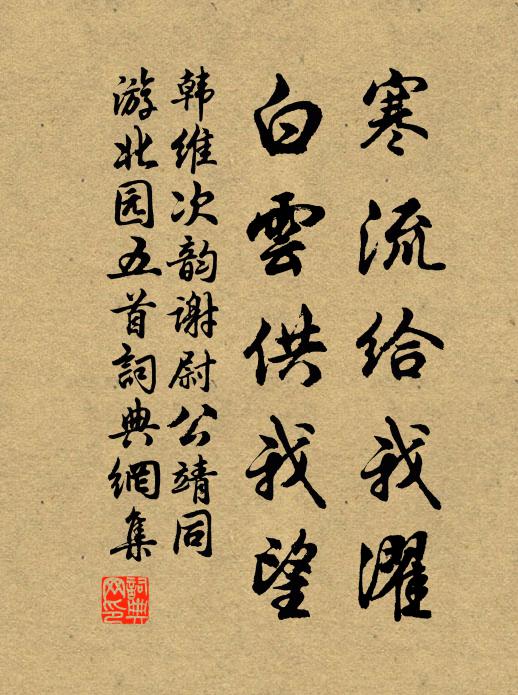 寒流给我濯
白雲供我望
韩维次韵谢尉公靖同
游北园五首詞典網集
詞典網印